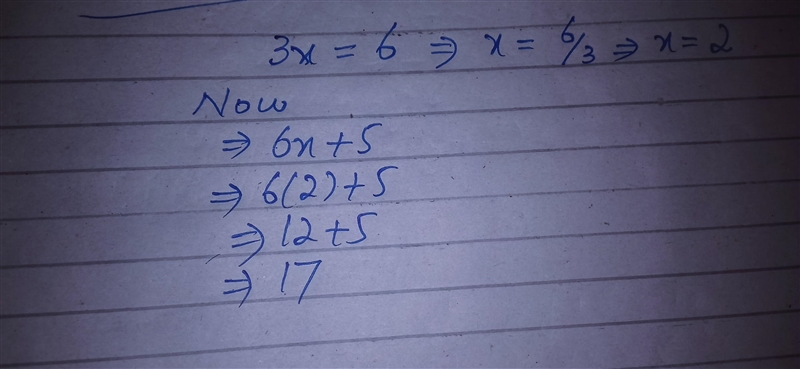 3x = 6 ⇒ x = 6/3 ⇒ x = 2
Now
⇒ 6x + 5
⇒ 6(2) + 5
⇒ 12 + 5
⇒ 17